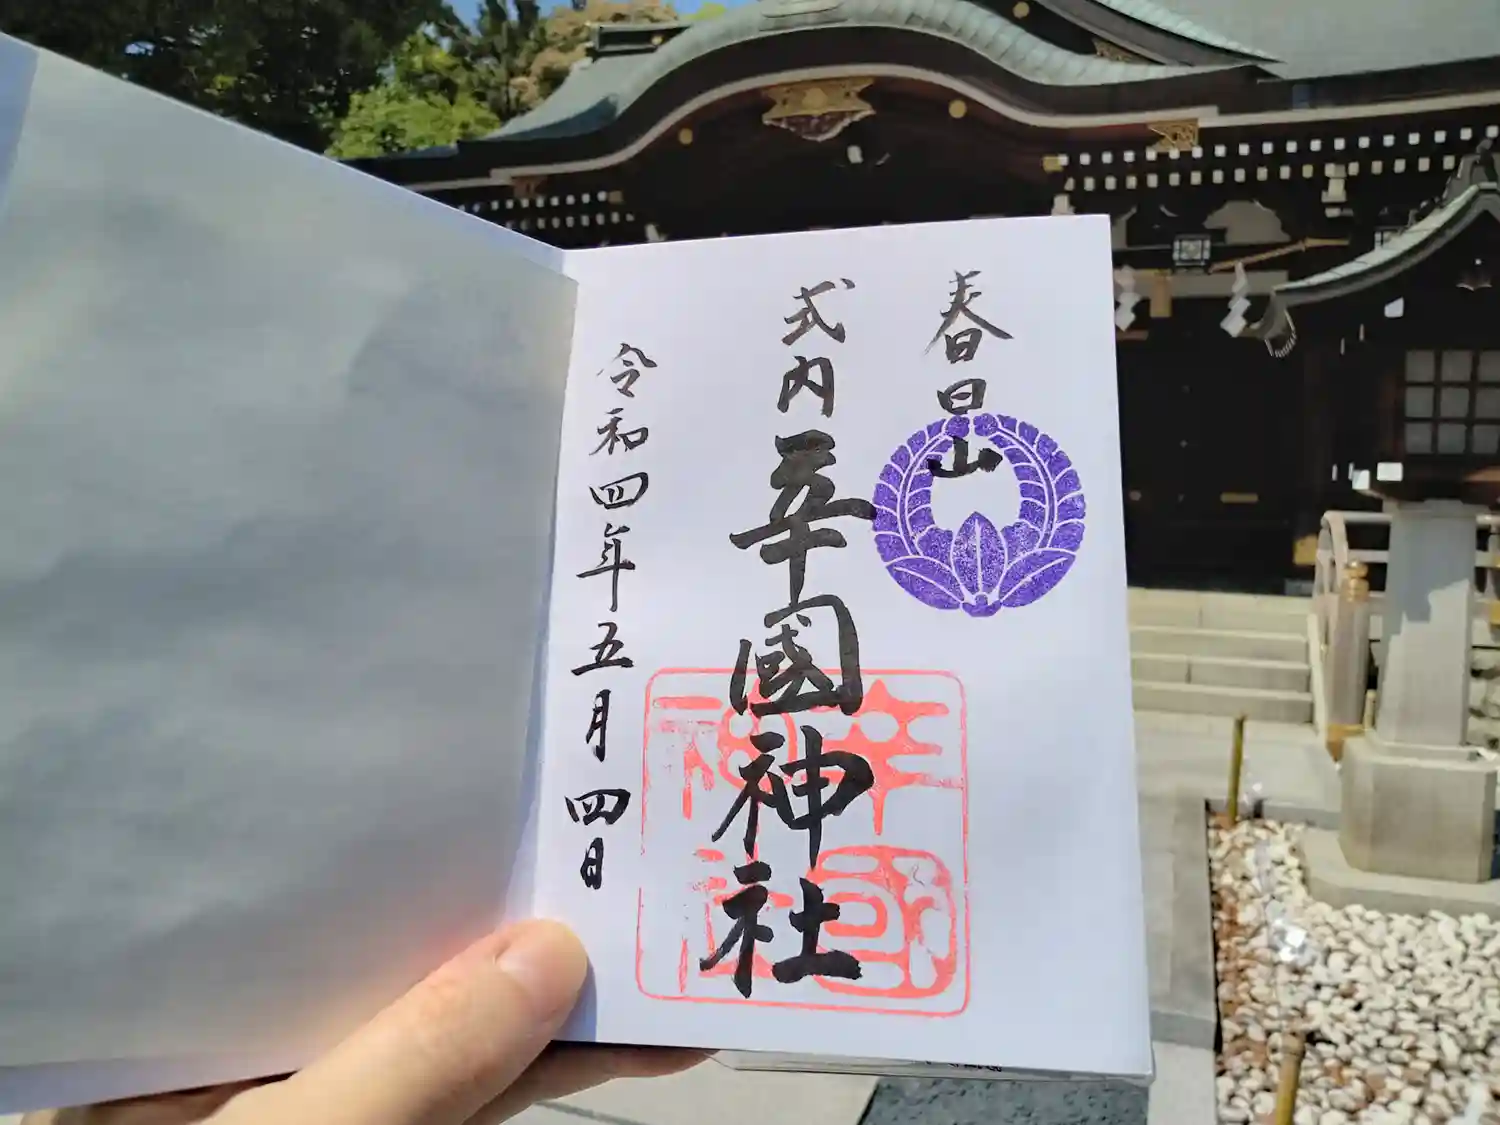 春日山
式内 辛國神社
令和四年五月四日
辛國
神社